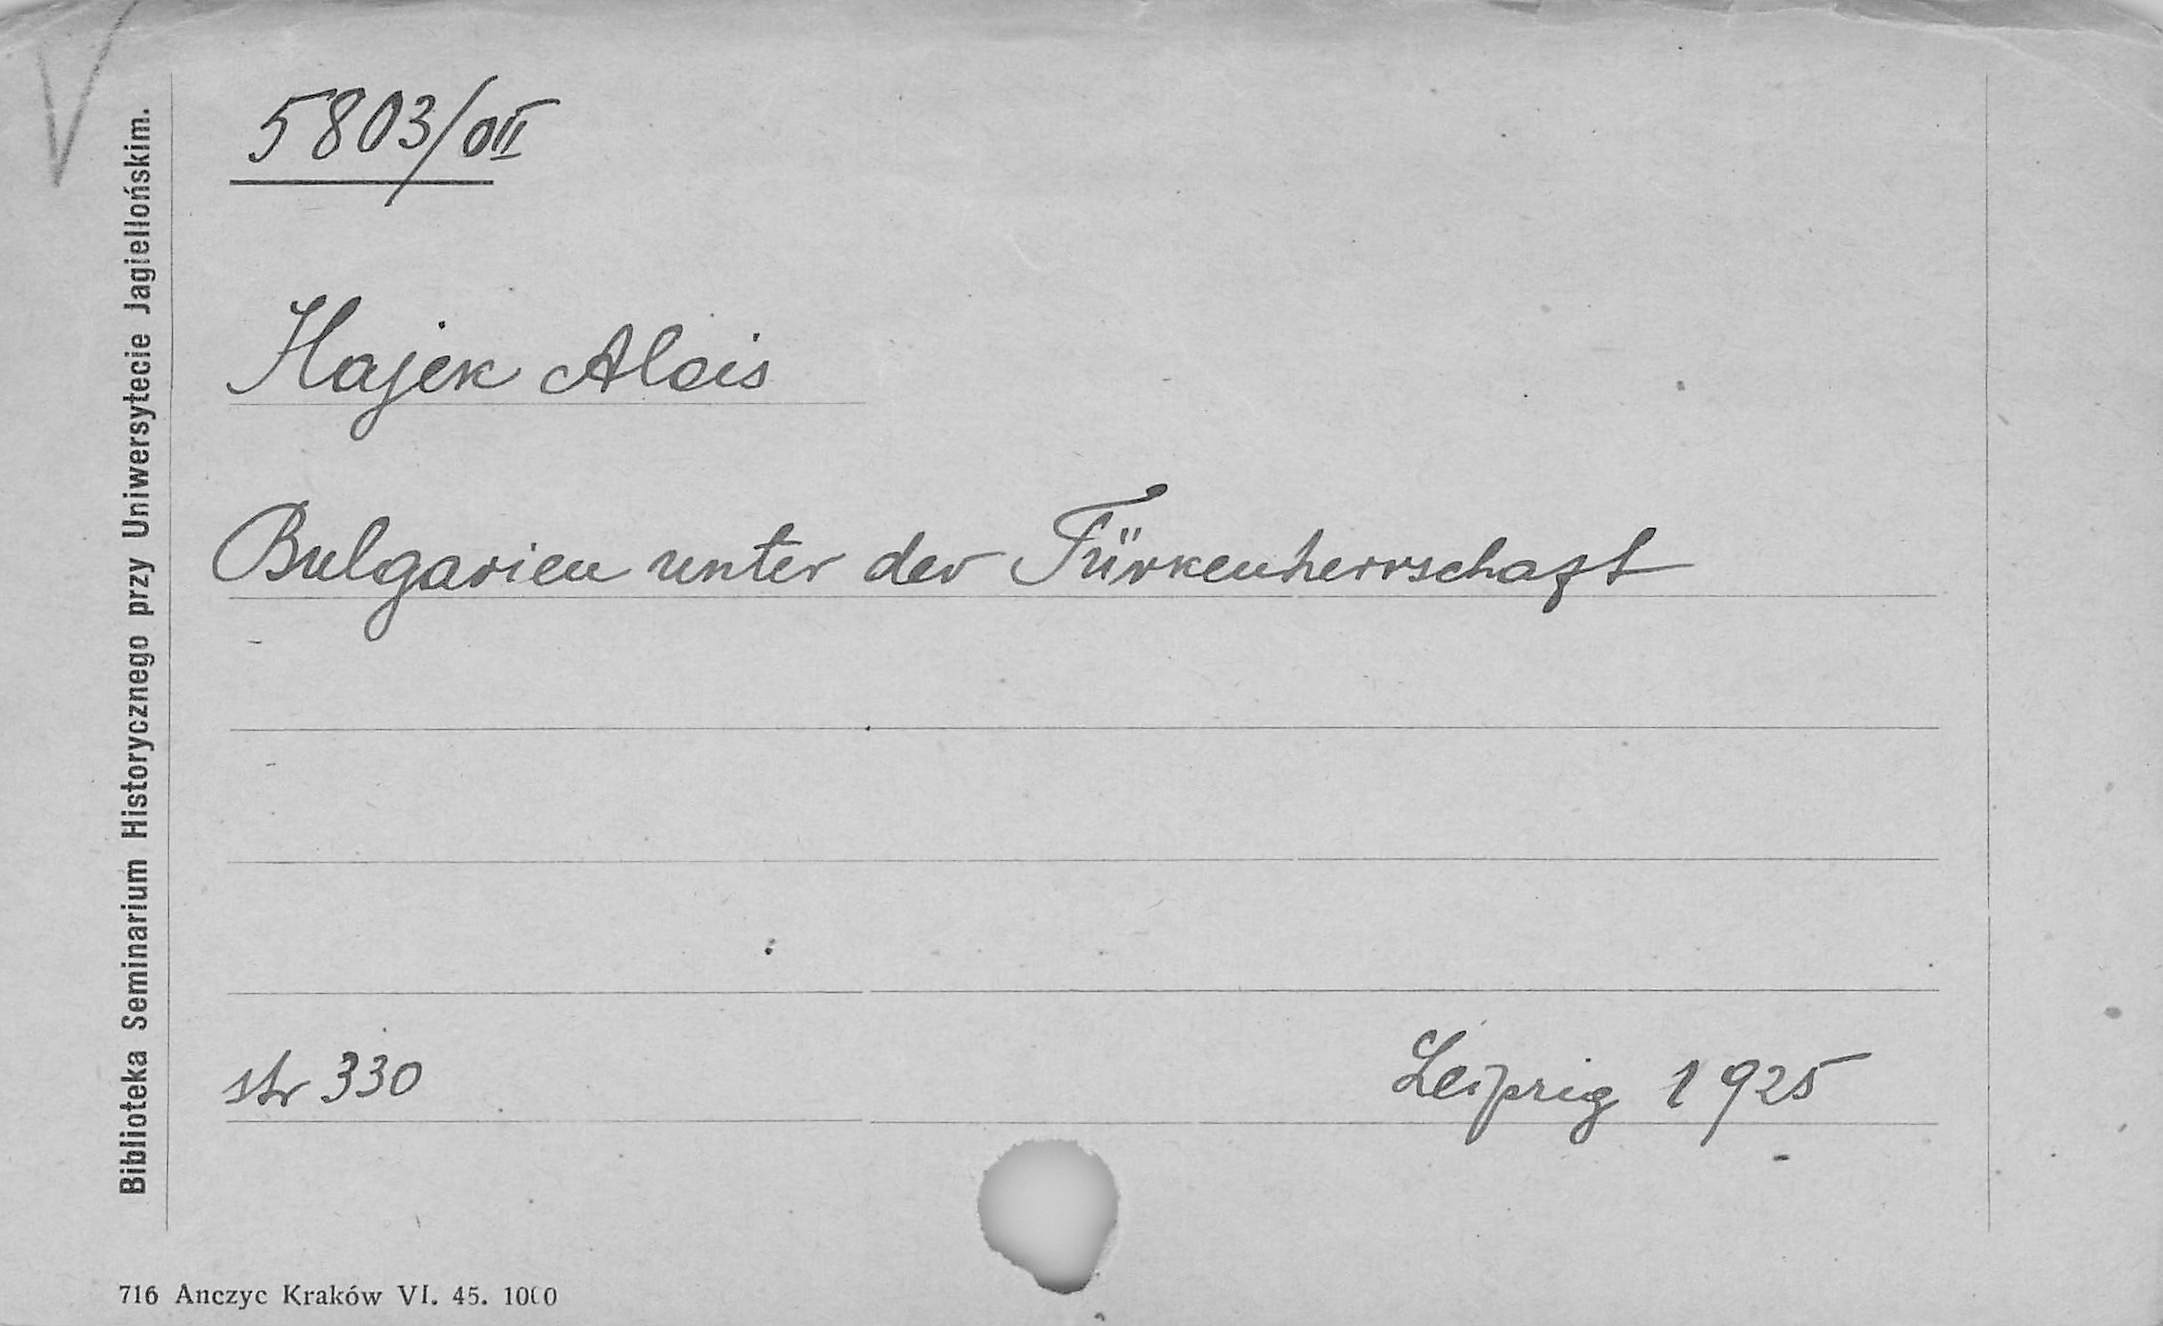 5803/OII
Hajek Alois
Bulgarien unter der Türkenherrschaft
str 330
Leipzig 1925
Biblioteka Seminarium Historycznego przy Uniwersytecie Jagiellońskim.
716 Anczyc Kraków VI. 45. 1000